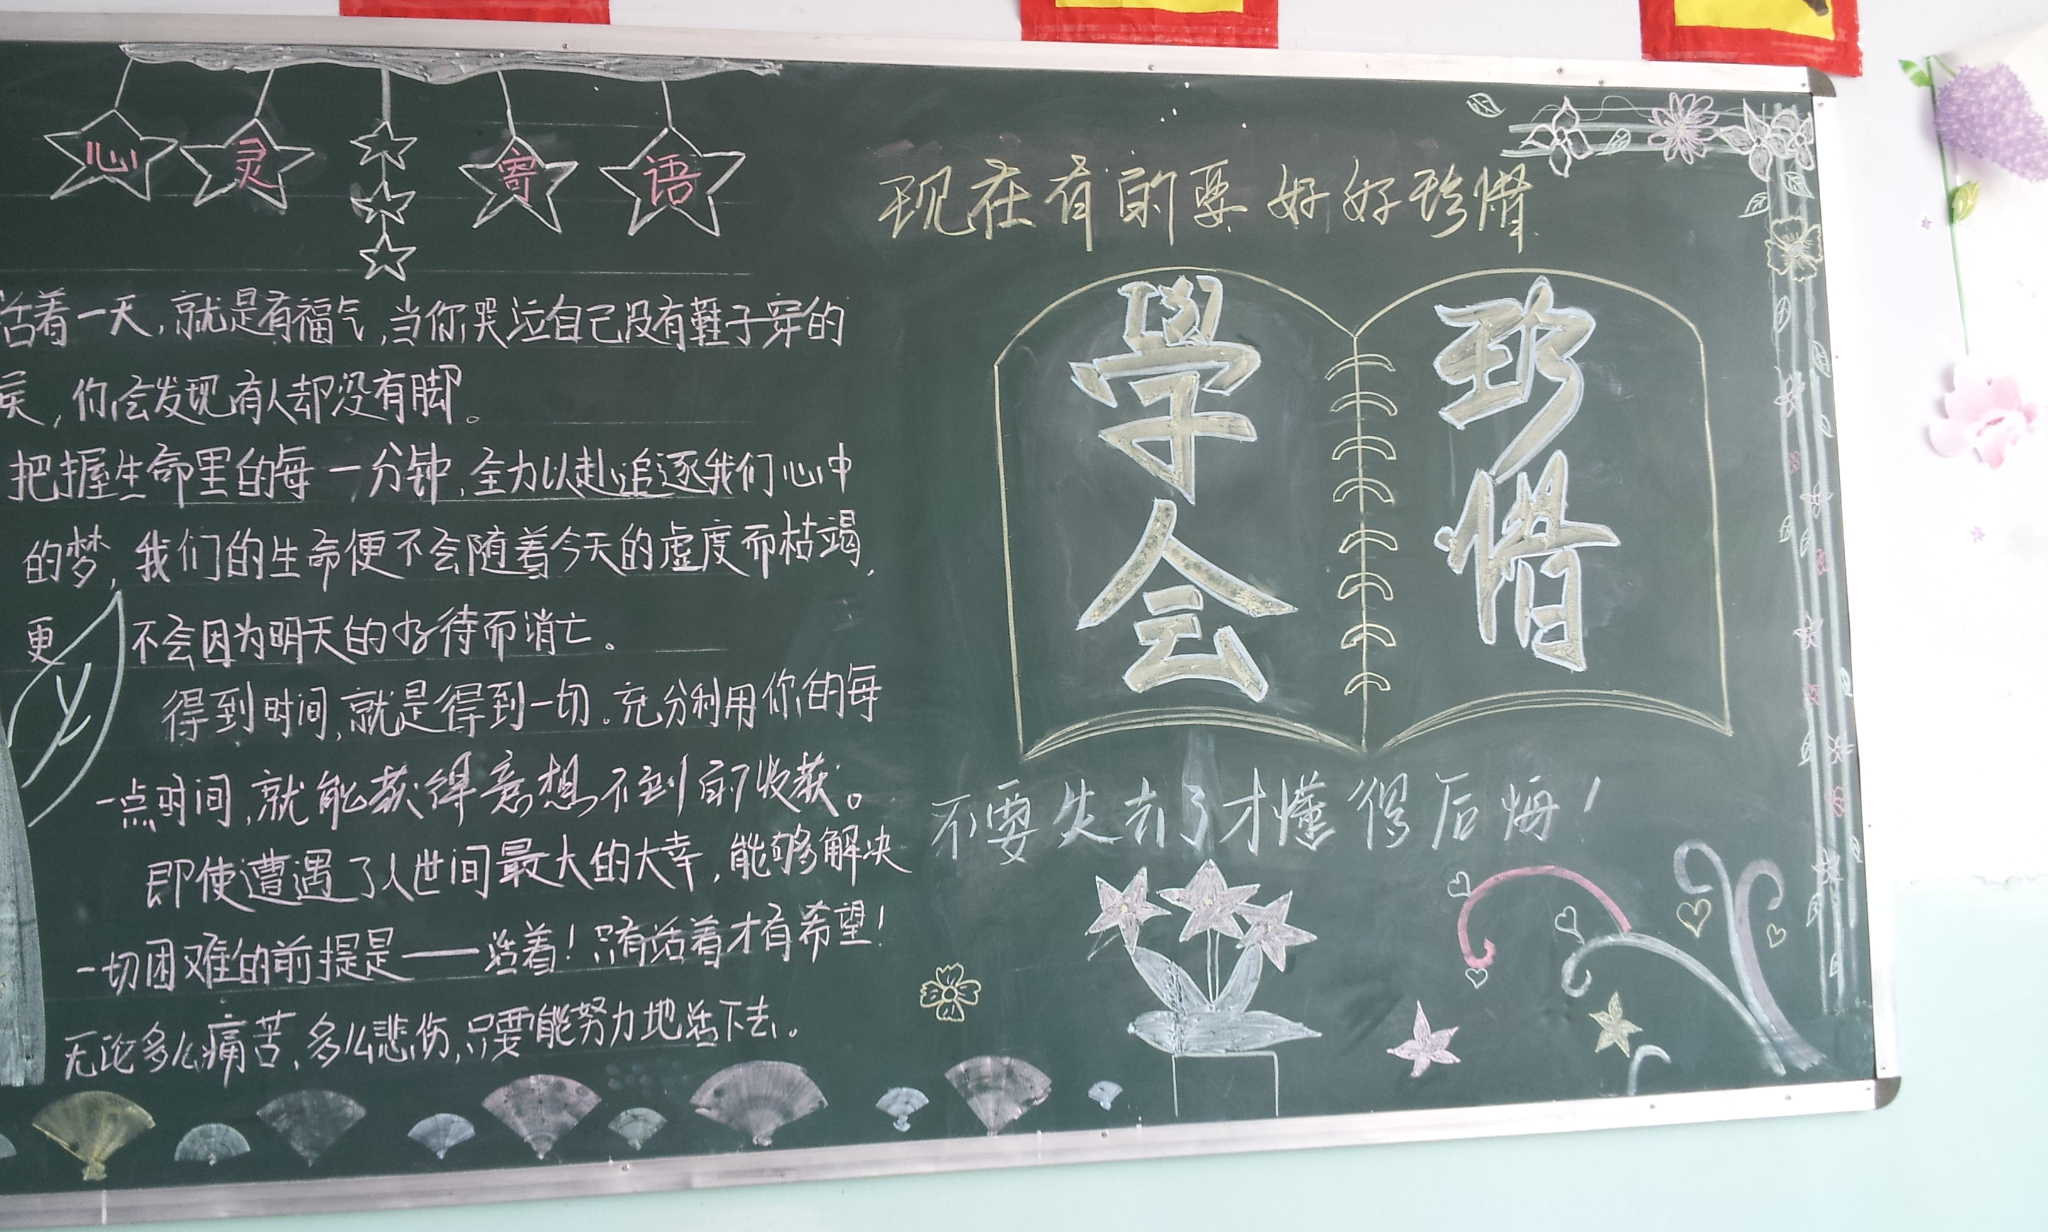 心灵寄语
活着一天，就是有福气，当你哭泣自己没有鞋子穿的
候，你会发现有人却没有脚。
把握生命里的每一分钟，全力以赴追逐我们心中
的梦，我们的生命便不会随着今天的虚度而枯竭，
更不会因为明天的等待而消亡。
得到时间，就是得到一切。充分利用你的每
一点时间，就能获得意想不到的收获。
即使遭遇了人世间最大的大幸，能够解决
一切困难的前提是——活着！只有活着才有希望！
无论多么痛苦，多么悲伤，只要能努力地活下去。
现在有的要好好珍惜
學会
珍惜
不要失去了才懂得后悔！